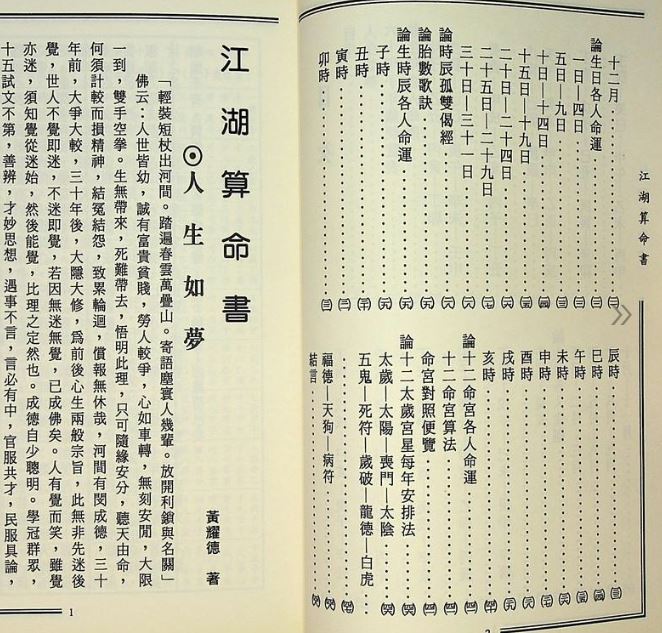 江湖算命書
十二月
論生日各人命運
一日—四日
五日—九日
十日—十四日
十五日—十九日
二十日—二十四日
二十五日—二十九日
三十日—三十一日
論時辰孤雙偈經
論胎數歌訣
論生時辰各人命運
子時
丑時
寅時
卯時
辰時
巳時
午時
未時
申時
酉時
戌時
亥時
論十二命宮各人命運
十二命宮算法
命宮對照便覽
論十二太歲宮星每年安排法
太歲—太陽—喪門—太陰
五鬼—死符—歲破—龍德—白虎
福德—天狗—病符
結言
江湖算命書
⊙人生如夢
黃耀德 著
「輕裝短杖出河間。踏遍春雲萬疊山。寄語塵寰人幾輩。放開利鎖與名關」
佛云：人世皆幼，誠有富貴貧賤，勞人較爭，心如車轉，無刻安閒，大限
一到，雙手空拳。生無帶來，死難帶去，悟明此理，只可隨緣安分，聽天由命，
何須計較而損精神，結冤結怨，致累輪迴，償報無休哉，河間有閔成德，三十
年前，大爭大較，三十年後，大隱大修，爲前後心生兩般宗旨，此無非先迷後
覺，世人不覺即迷，不迷即覺，若因無迷無覺，已成佛矣。人有覺而笑，雖覺
亦迷，須知覺從迷始，然後能覺，比理之定然也。成德自少聰明。學冠群眾，
十五試文不第，善辨，才妙思想，遇事不言，言必有中，官服共才，民服具論，
1